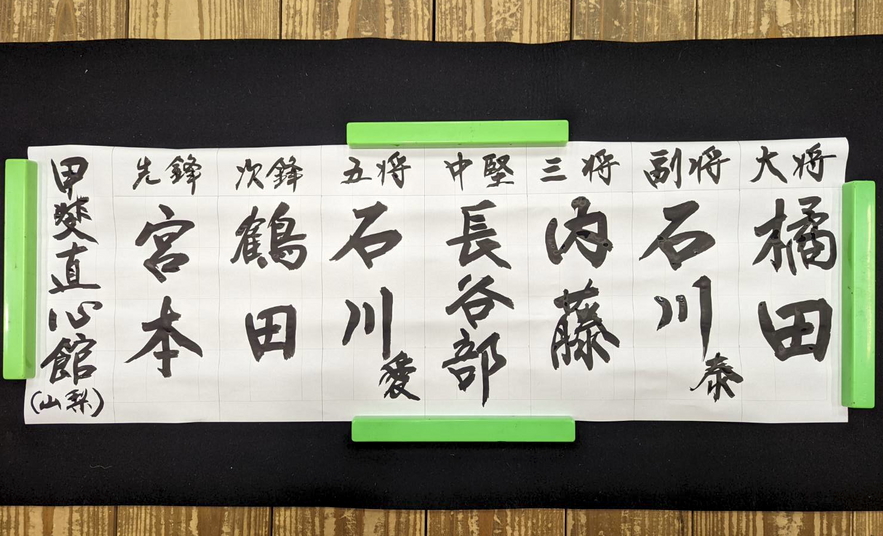 甲斐直心館
(山梨)
先鋒
宮本
次鋒
鶴田
五将
石川愛
中堅
長谷部
三将
内藤
副将
石川泰
大将
橘田